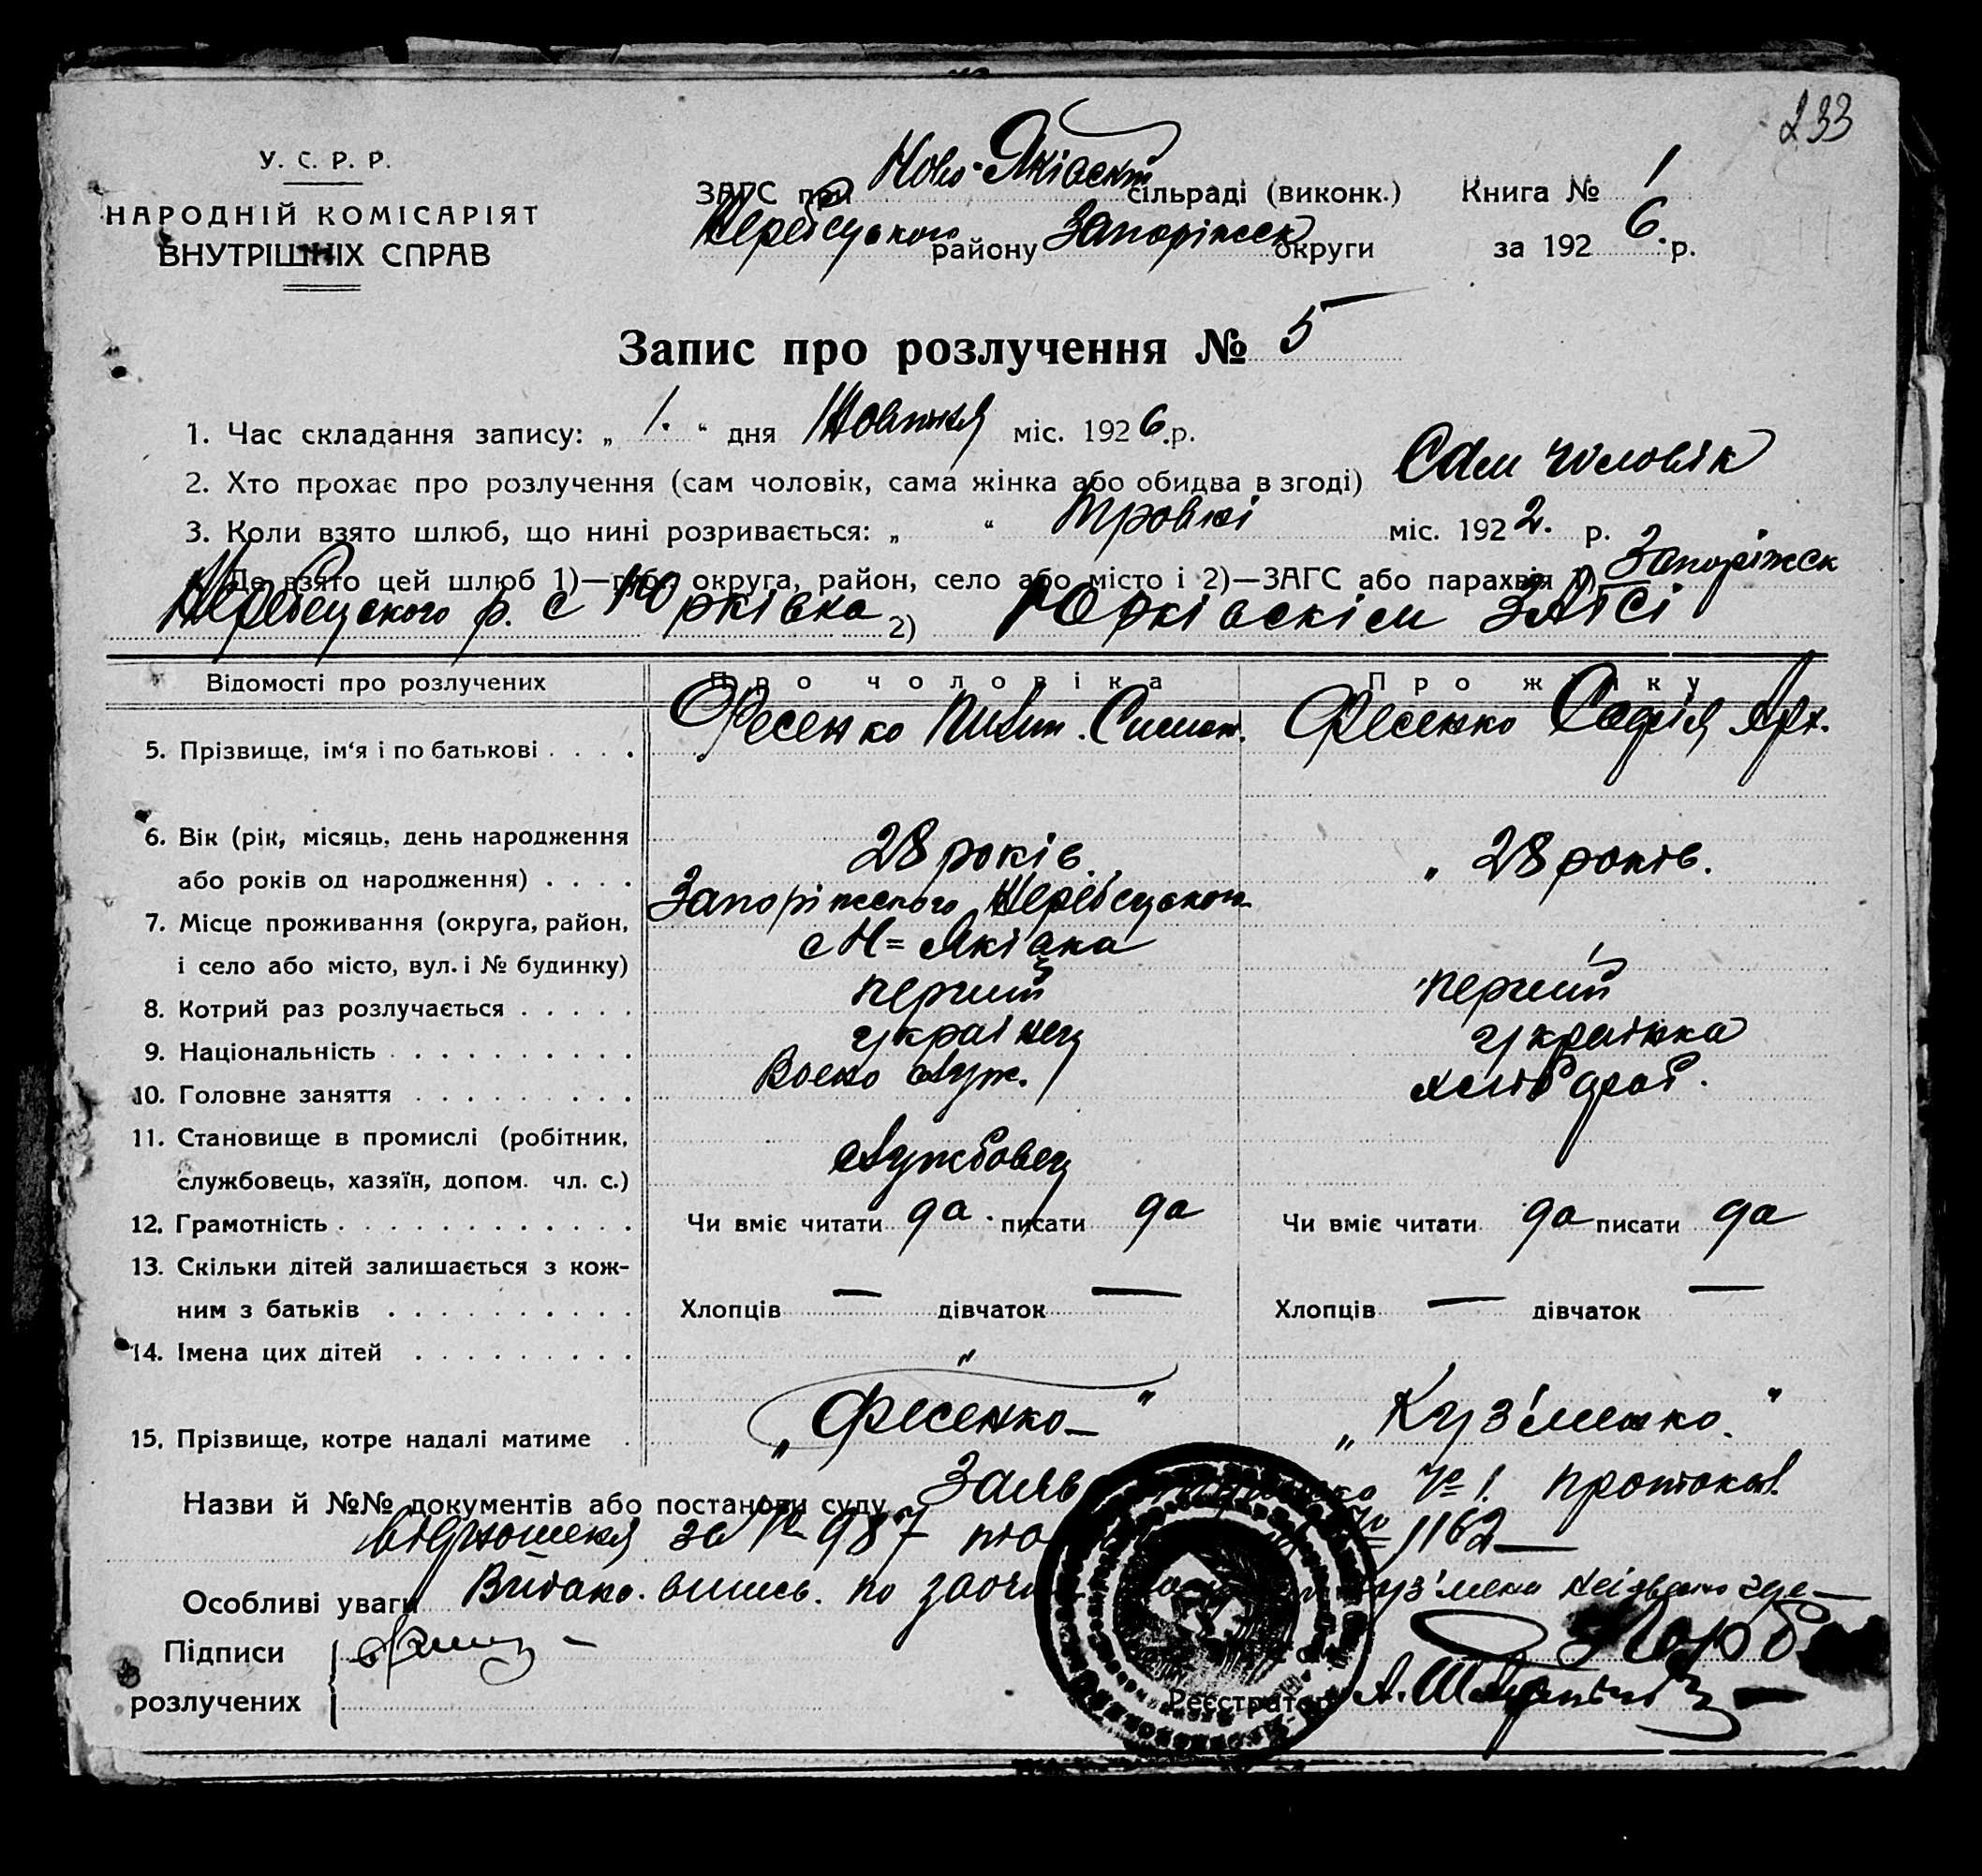 233
У. С. Р. Р.
НАРОДНІЙ КОМІСАРІЯТ
ВНУТРІШНІХ СПРАВ
ЗАГС при Ново-Яківскій сільраді (виконк.) Книга № 1
району Запоріжск округи за 1926.р.
Запис про розлучення № 5
1. Час складання запису: „ 1. “ дня Жовтня міс. 1926.р.
2. Хто прохає про розлучення (сам чоловік, сама жінка або обидва в згоді) Сам чоловік
3. Коли взято шлюб, що нині розривається: „ “ міс. 1922. р.
Де взято цей шлюб 1)— округа, район, село або місто і 2)—ЗАГС або парахвія Запоріжск
р. с Юрківка 2) Юрківскім ЗАГСі
Відомості про розлучених Про чоловіка Про жінку
5. Прізвище, ім‘я і по батькові . . . . Фесенко Пилип . Симон. Фесенко Софія Арх.
6. Вік (рік, місяць, день народження
або років од народження) . . . . 28 років. „ 28 років.
7. Місце проживання (округа, район, Запоріжского
і село або місто, вул. і № будинку) с Н=Яківка
8. Котрий раз розлучається . . . . . перший перший
9. Національність . . . . . . . . . . українец українка
10. Головне заняття . . . . . . . . . Воєно служ. хлібороб.
11. Становище в промислі (робітник,
службовець, хазяїн, допом. чл. с.) службовец
12. Грамотність . . . . . . . . . . . . Чи вміє читати да . писати да Чи вміє читати да писати да
13. Скільки дітей залишається з кож-
ним з батьків . . . . . . . . . . Хлопців — дівчаток — Хлопців — дівчаток —
14. Імена цих дітей . . . . . . . . . "
15. Прізвище, котре надалі матиме . „ Фесенко — " „ Куз'менко. "
Назви й №№ документів або постанови суду Заяв № 1. протокол
за № 987 № 1162 —
Особливі уваги Видано. випись. по заочн
Підписи
розлучених
Реєстратор